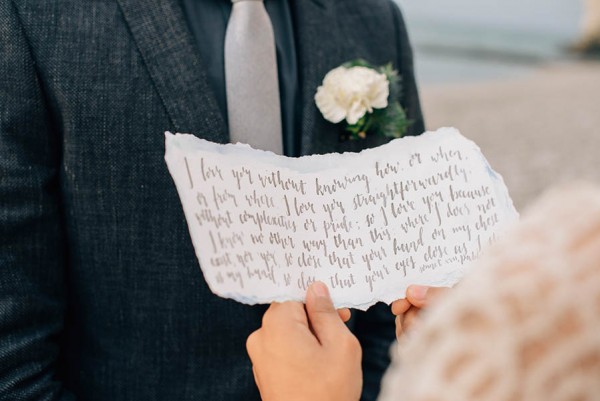 I love you without knowing how, or when,
or from where. I love you straightforwardly,
without complexity or pride; so I love you because
I know no other way than this, where I does not
exist, nor you, so close that your hand on my chest
is my hand, so close that your eyes close as I